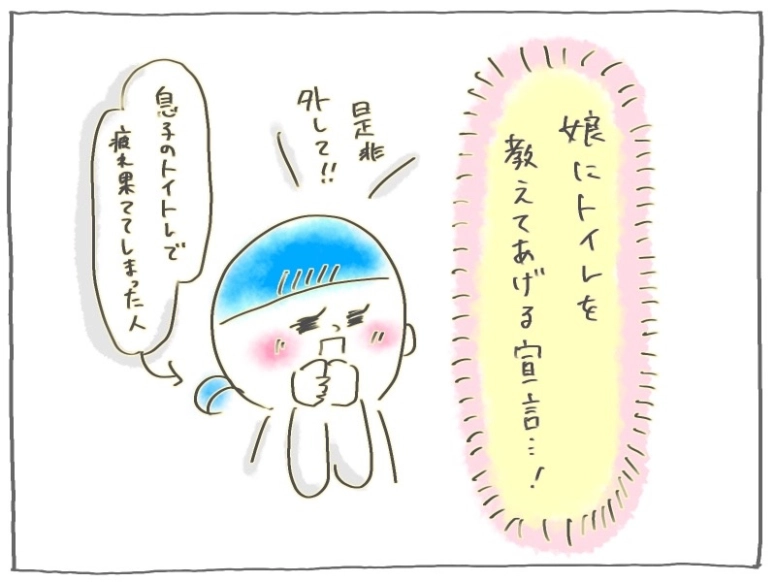 娘にトイレを
教えてあげる宣言…!
是非
外して!!
息子のトイトレで
疲れ果ててしまった人